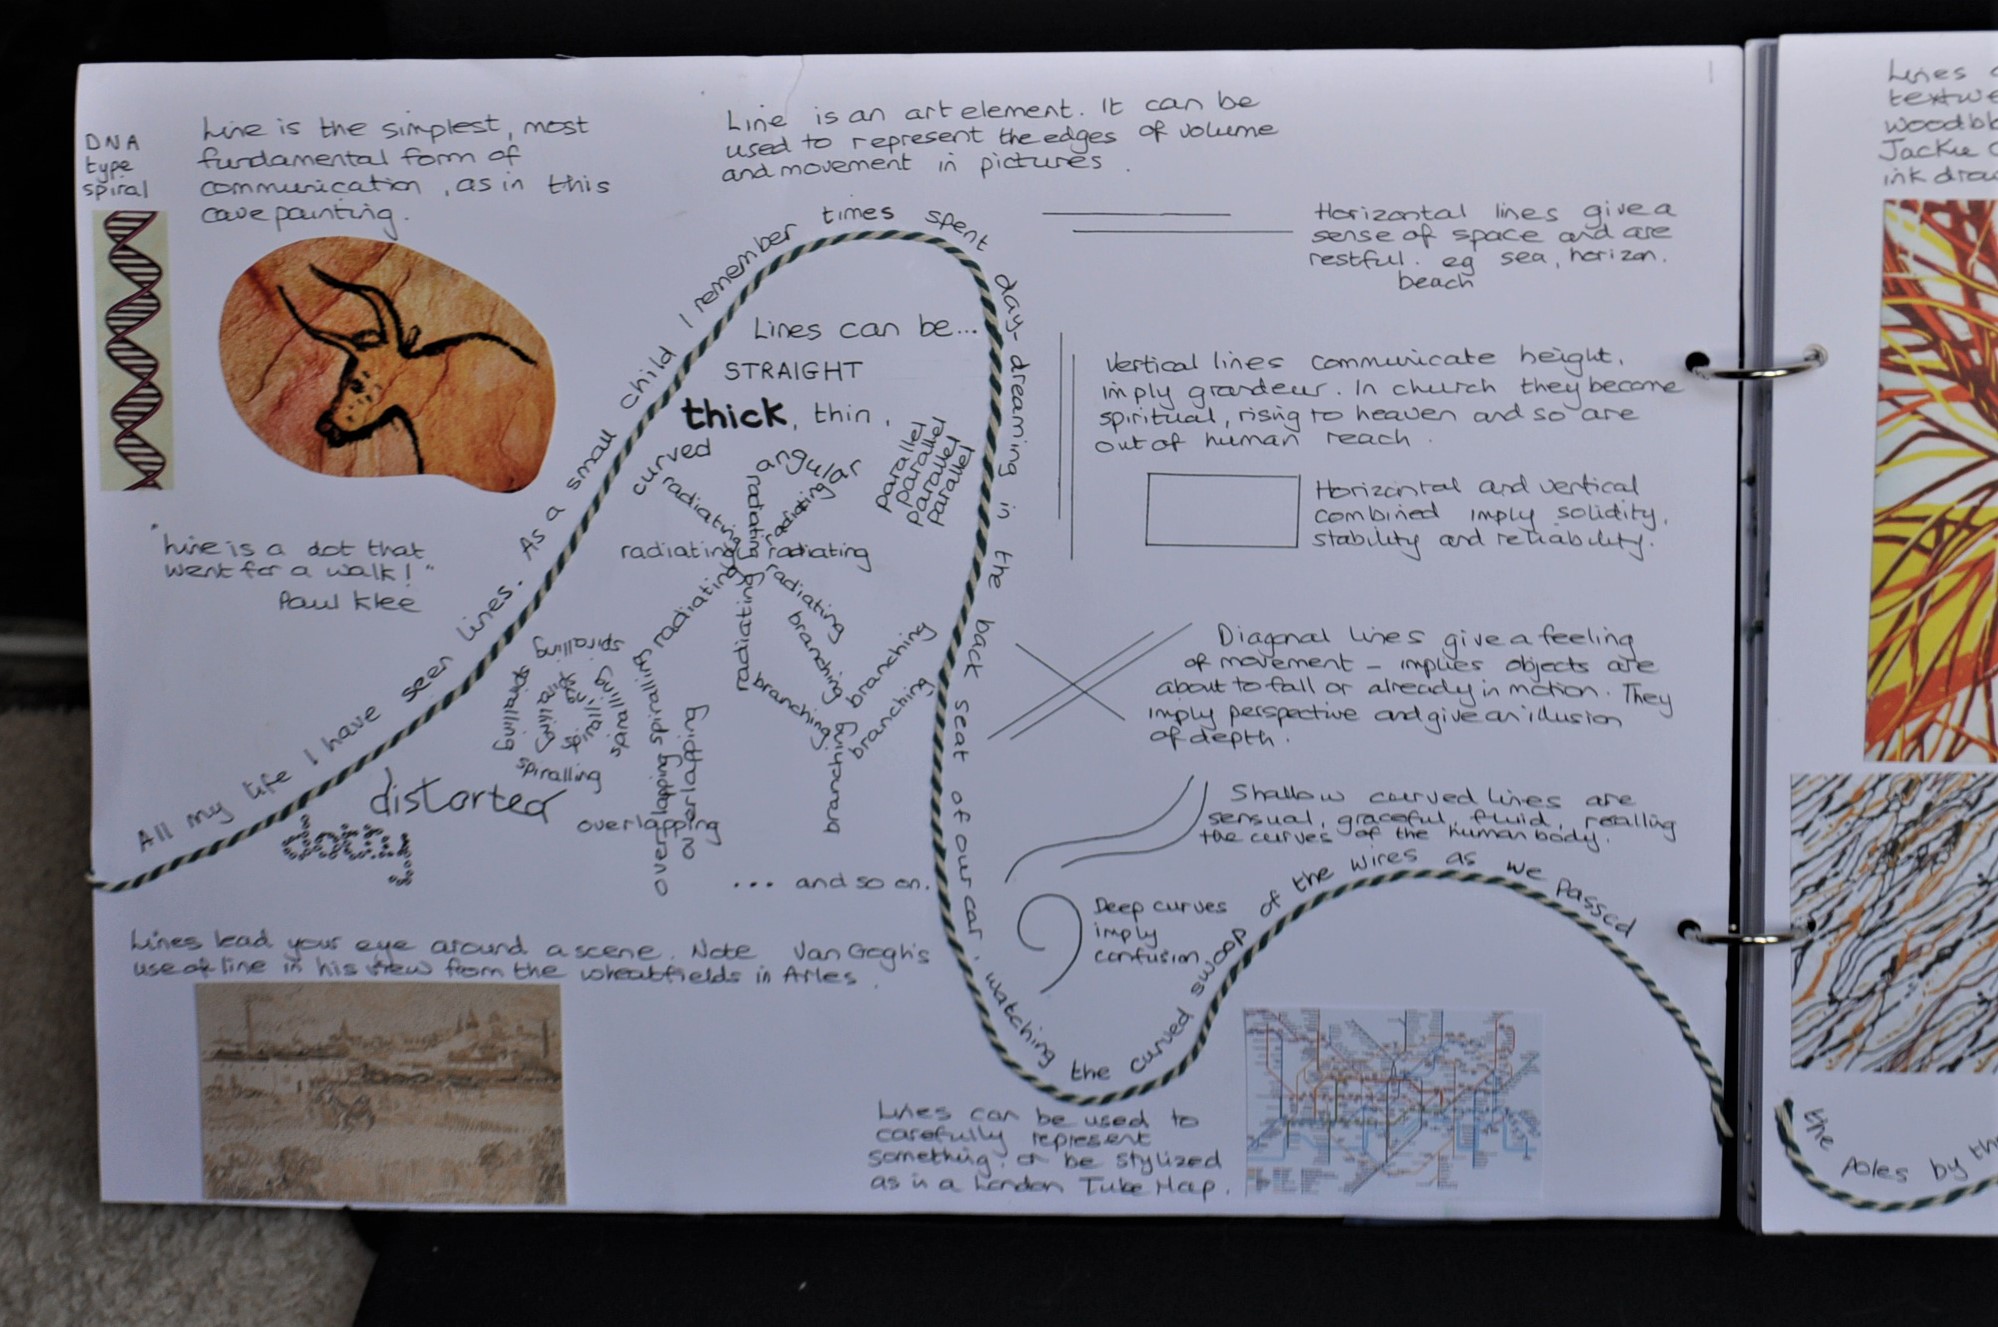 DNA
type
spiral
Line is the simplest, most
fundamental form of
communication, as in this
cave painting.
Line is an art element. It can be
used to represent the edges of volume
and movement in pictures.
"Line is a dot that
went for a walk!"
Paul Klee
All my life I have seen lines. As a small child I remember times spent day-dreaming in the back seat of our car, watching the curved swoop of the wires as we passed
Lines can be...
STRAIGHT
thick, thin,
curved
angular
parallel
parallel
parallel
parallel
radiating
radiating
radiating
radiating
radiating
radiating
radiating
radiating
branching
branching
branching
branching
branching
spiralling
spiralling
spiralling
spiralling
spiralling
spiralling
spiralling
spiralling
distorted
dotty
overlapping
overlapping
overlapping
... and so on.
Horizontal lines give a
sense of space and are
restful. eg sea, horizon.
beach
Vertical lines communicate height,
imply grandeur. In church they become
spiritual, rising to heaven and so are
out of human reach.
Horizontal and vertical
combined imply solidity,
stability and reliability.
Diagonal lines give a feeling
of movement – implies objects are
about to fall or already in motion. They
imply perspective and give an illusion
of depth.
Shallow curved lines are
sensual, graceful, fluid, recalling
the curves of the human body.
Deep curves
imply
confusion.
Lines lead your eye around a scene. Note Van Gogh's
use of line in his view from the wheatfields in Arles.
Lines can be used to
carefully represent
something, or be stylized
as in a London Tube Map.
Lines
woodbl
Jackie
ink draw
the Poles by th